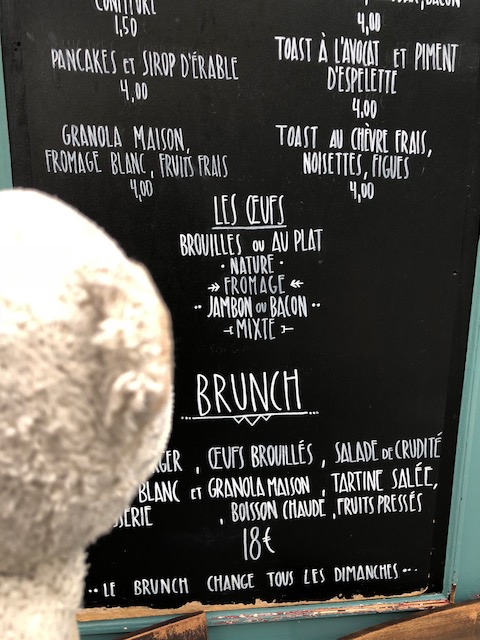 CONFITURE
1,50
4,00
PANCAKES ET SIROP D'ÉRABLE
4,00
TOAST À L'AVOCAT ET PIMENT
D'ESPELETTE
4,00
GRANOLA MAISON,
FROMAGE BLANC, FRUITS FRAIS
4,00
TOAST AU CHÈVRE FRAIS,
NOISETTES, FIGUES
4,00
LES ŒUFS
BROUILLES OU AU PLAT
NATURE
FROMAGE
JAMBON OU BACON
MIXTE
BRUNCH
, ŒUFS BROUILLÉS, SALADE DE CRUDITÉ
BLANC ET GRANOLA MAISON, TARTINE SALÉE,
, BOISSON CHAUDE, FRUITS PRESSÉS
18€
LE BRUNCH CHANGE TOUS LES DIMANCHES